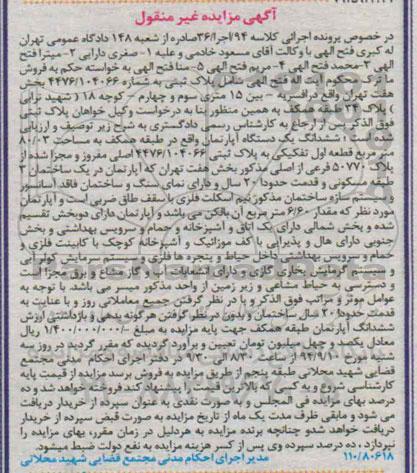 آگهی مزایده غیر منقول
در خصوص پرونده اجرائی کلاسه ۹۴/اجرا/۳۶صادره از شعبه ۱۴۸ دادگاه عمومی تهران
له کبری فتح الهی با وکالت آقای مسعود خادمی و علیه ۱- صغری دارابی ۲-میترا فتح
الهی ۳-محمد فتح الهی ۴-مریم فتح الهی ۵-مینا فتح الهی به خواسته حکم به فروش
ما ترک محکوم آیت اله فتح الهی شامل پلاک ثبتی به شماره ۴۴۷۶/۱۰۴۰۶۶ بخش
هفت تهران واقع در بین ۱۵ متری سوم و چهارم – کوچه ۱۸ ( شهید ترابی
) پلاک ۳۴ طبقه همکف به همین منظور بنا به درخواست وکیل خواهان پلاک ثبتی
فوق الذکر پس از ارجاع به کارشناس رسمی دادگستری به شرح زیر توصیف و ارزیابی
شده است : ششدانگ یک دستگاه آپارتمان واقع در طبقه همکف به مساحت ۸۰۰۳
متر مربع قطعه اول تفکیکی به پلاک ثبتی ۴۴۷۶/۱۰۴۰۶۶ اصلی مفروز و مجزا شده از
پلاک ۵۰۷۷۰ فرعی از اصلی مذکور بخش هفت تهران که آپارتمان در یک ساختمان ۳
طبقه مسکونی و قدمت حدودا ۲۰ سال و دارای نمای سنگ و ساختمان فاقد آسانسور
سیستم سازه ساختمان مذکور نیم اسکلت فلزی با سقف طاق ضربی است و آپارتمان
مورد نظر که مقدار ۶/۶۰ متر مربع آن بالکن می باشد و آپارتمان دارای دوبخش تقسیم
شده و بخش شمالی دارای یک اتاق و آشپزخانه و حمام و سرویس بهداشتی و بخش
جنوبی دارای هال و پذیرایی با کف موزائیک و آشپزخانه کوچک با کابینت فلزی و
حمام و سرویس بهداشتی داخل حیاط و پنجره ها فلزی و سیستم سرمایش کولر آبی
و سیستم گرمایش بخاری گازی و دارای انشعابات آب و گاز مشاع و برق مجزا است
و دسترسی به حیاط مشاعی و زیر زمین از واحد مذکور میسر می باشد. با توجه به
عوامل موثر و مراتب فوق الذکر و با در نظر گرفتن جمیع معاملاتی روز و با عنایت به
قدمت حدودا ۲۰ سال ساختمان و بدون در نظر گرفتن هرگونه بدهی و بازداشتی ارزش
ششدانگ آپارتمان طبقه همکف جهت پایه مزایده به مبلغ ۱/۴۰۰/۰۰۰/۰۰۰/- ریال
معادل یکصد و چهل میلیون تومان تعیین و برآورد گردیده که مقرر گردید در روز سه
شنبه مورخ ۹۴/۹/۱۰ از ساعت ۸/۳۰ الی ۹/۳۰ در دفتر اجرای احکام مدنی مجتمع
قضایی شهید محلاتی طبقه پنجم از طریق مزایده به فروش برسد مزایده از قیمت پایه
کارشناسی شروع و به کسی که بالاترین قیمت را پیشنهاد کند فروخته خواهد شد و ده
درصد بهای مزایده فی المجلس و به صورت نقدی به عنوان سپرده از خریدار دریافت
می شود و مابقی ظرف مدت یک ماه از تاریخ مزایده به صورت قبض سپرده از خریدار
دریافت خواهد شدو چنانچه برنده مزایده به هر دلیل در زمان مقرر، بهای مزایده را
نپردازد ، ده درصد سپرده وی پس از کسر هزینه مزایده به نفع دولت ضبط میشود
۱۱۰/۸۰۶۱۸ مدیر اجرای احکام مدنی مجتمع قضایی شهید محلاتی